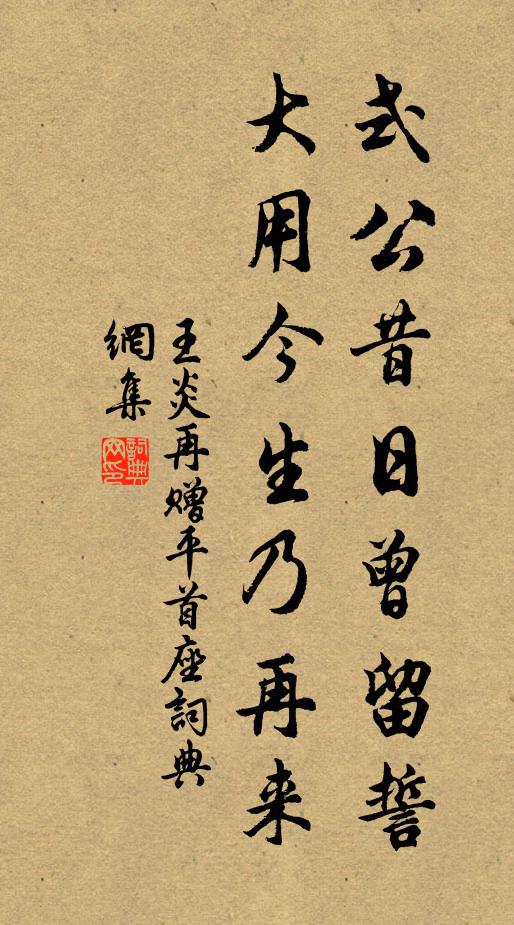 式公昔日曾留誓
大用今生乃再来
王炎再赠平首座詞典
網集
詞典
网印